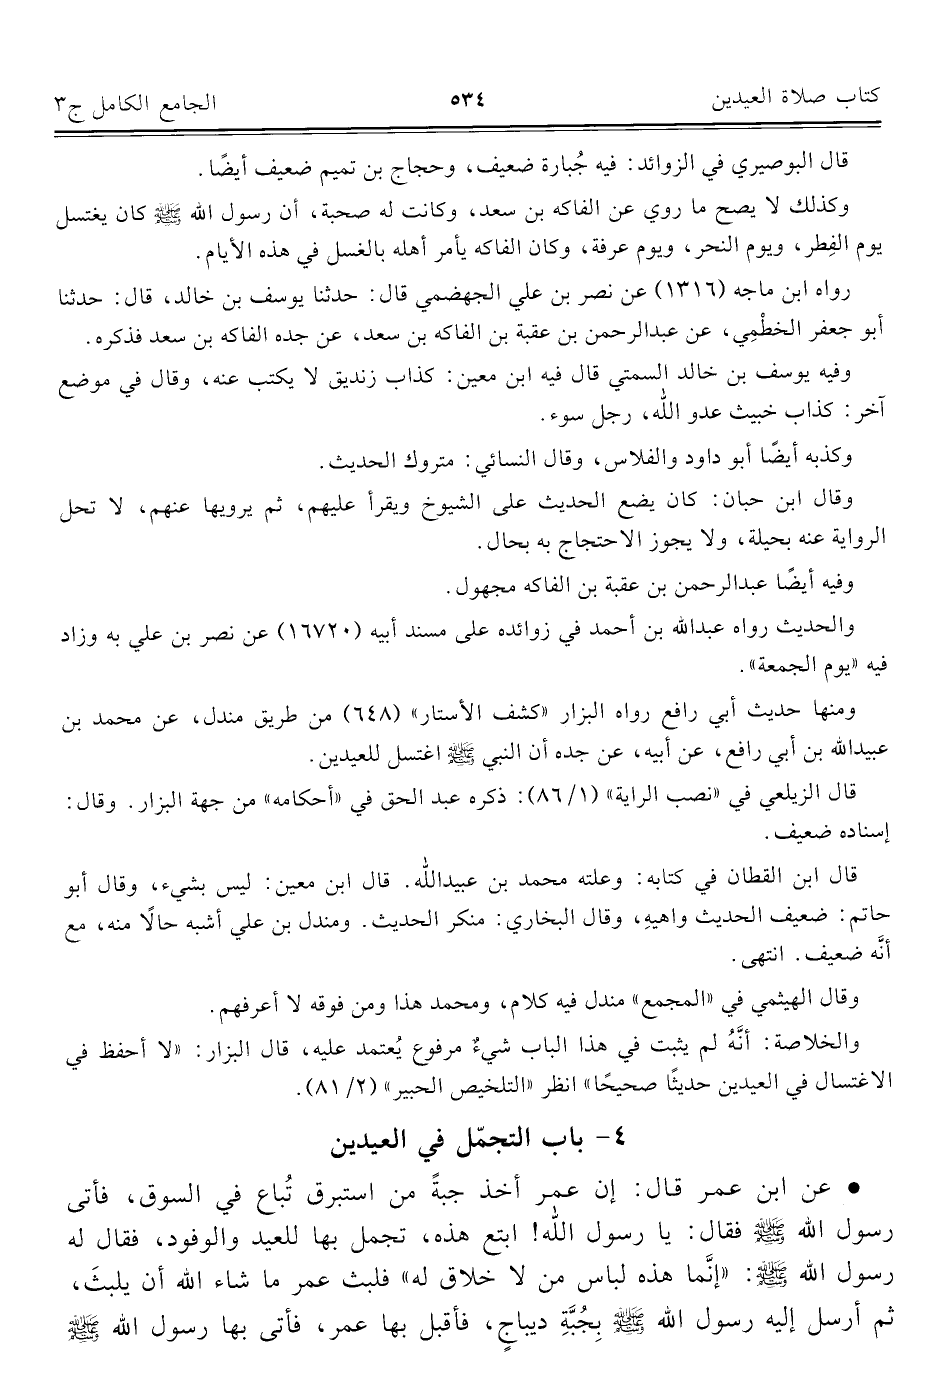 كتاب صلاة العيدين ٥٣٤ الجامع الكامل ج٣
قال البوصيري في الزوائد: فيه جُبارة ضعيف، وحجاج بن تميم ضعيف أيضًا.
وكذلك لا يصح ما روي عن الفاكه بن سعد، وكانت له صحبة، أن رسول الله ﷺ كان يغتسل
يوم الفِطر، ويوم النحر، ويوم عرفة، وكان الفاكه يأمر أهله بالغسل في هذه الأيام.
رواه ابن ماجه (١٣١٦) عن نصر بن علي الجهضمي قال: حدثنا يوسف بن خالد، قال: حدثنا
أبو جعفر الخطْمِي، عن عبدالرحمن بن عقبة بن الفاكه بن سعد، عن جده الفاكه بن سعد فذكره.
وفيه يوسف بن خالد السمتي قال فيه ابن معين: كذاب زنديق لا يكتب عنه، وقال في موضع
آخر: كذاب خبيث عدو الله، رجل سوء.
وكذبه أيضًا أبو داود والفلاس، وقال النسائي: متروك الحديث.
وقال ابن حبان: كان يضع الحديث على الشيوخ ويقرأ عليهم، ثم يرويها عنهم، لا تحل
الرواية عنه بحيلة، ولا يجوز الاحتجاج به بحال.
وفيه أيضًا عبدالرحمن بن عقبة بن الفاكه مجهول.
والحديث رواه عبدالله بن أحمد في زوائده على مسند أبيه (١٦٧٢٠) عن نصر بن علي به وزاد
فيه «يوم الجمعة».
ومنها حديث أبي رافع رواه البزار «كشف الأستار» (٦٤٨) من طريق مندل، عن محمد بن
عبيدالله بن أبي رافع، عن أبيه، عن جده أن النبي ﷺ اغتسل للعيدين.
قال الزيلعي في «نصب الراية» (٨٦/١): ذكره عبد الحق في «أحكامه» من جهة البزار. وقال:
إسناده ضعيف.
قال ابن القطان في كتابه: وعلته محمد بن عبيدالله. قال ابن معين: ليس بشيء، وقال أبو
حاتم: ضعيف الحديث واهيهِ، وقال البخاري: منكر الحديث. ومندل بن علي أشبه حالًا منه، مع
أنَّه ضعيف. انتهى.
وقال الهيثمي في «المجمع» مندل فيه كلام، ومحمد هذا ومن فوقه لا أعرفهم.
والخلاصة: أنَّهُ لم يثبت في هذا الباب شيءٌ مرفوع يُعتمد عليه، قال البزار: «لا أحفظ في
الاغتسال في العيدين حديثًا صحيحًا» انظر «التلخيص الحبير» (٨١/٢).
٤- باب التجمّل في العيدين
• عن ابن عمر قال: إن عمر أخذ جبةً من استبرق تُباع في السوق، فأتى
رسول الله ﷺ فقال: يا رسول الله! ابتع هذه، تجمل بها للعيد والوفود، فقال له
رسول الله ﷺ: «إنَّما هذه لباس من لا خلاق له» فلبث عمر ما شاء الله أن يلبثَ،
ثم أرسل إليه رسول الله ﷺ بِجُبَّةِ ديباجٍ، فأقبل بها عمر، فأتى بها رسول الله ﷺ